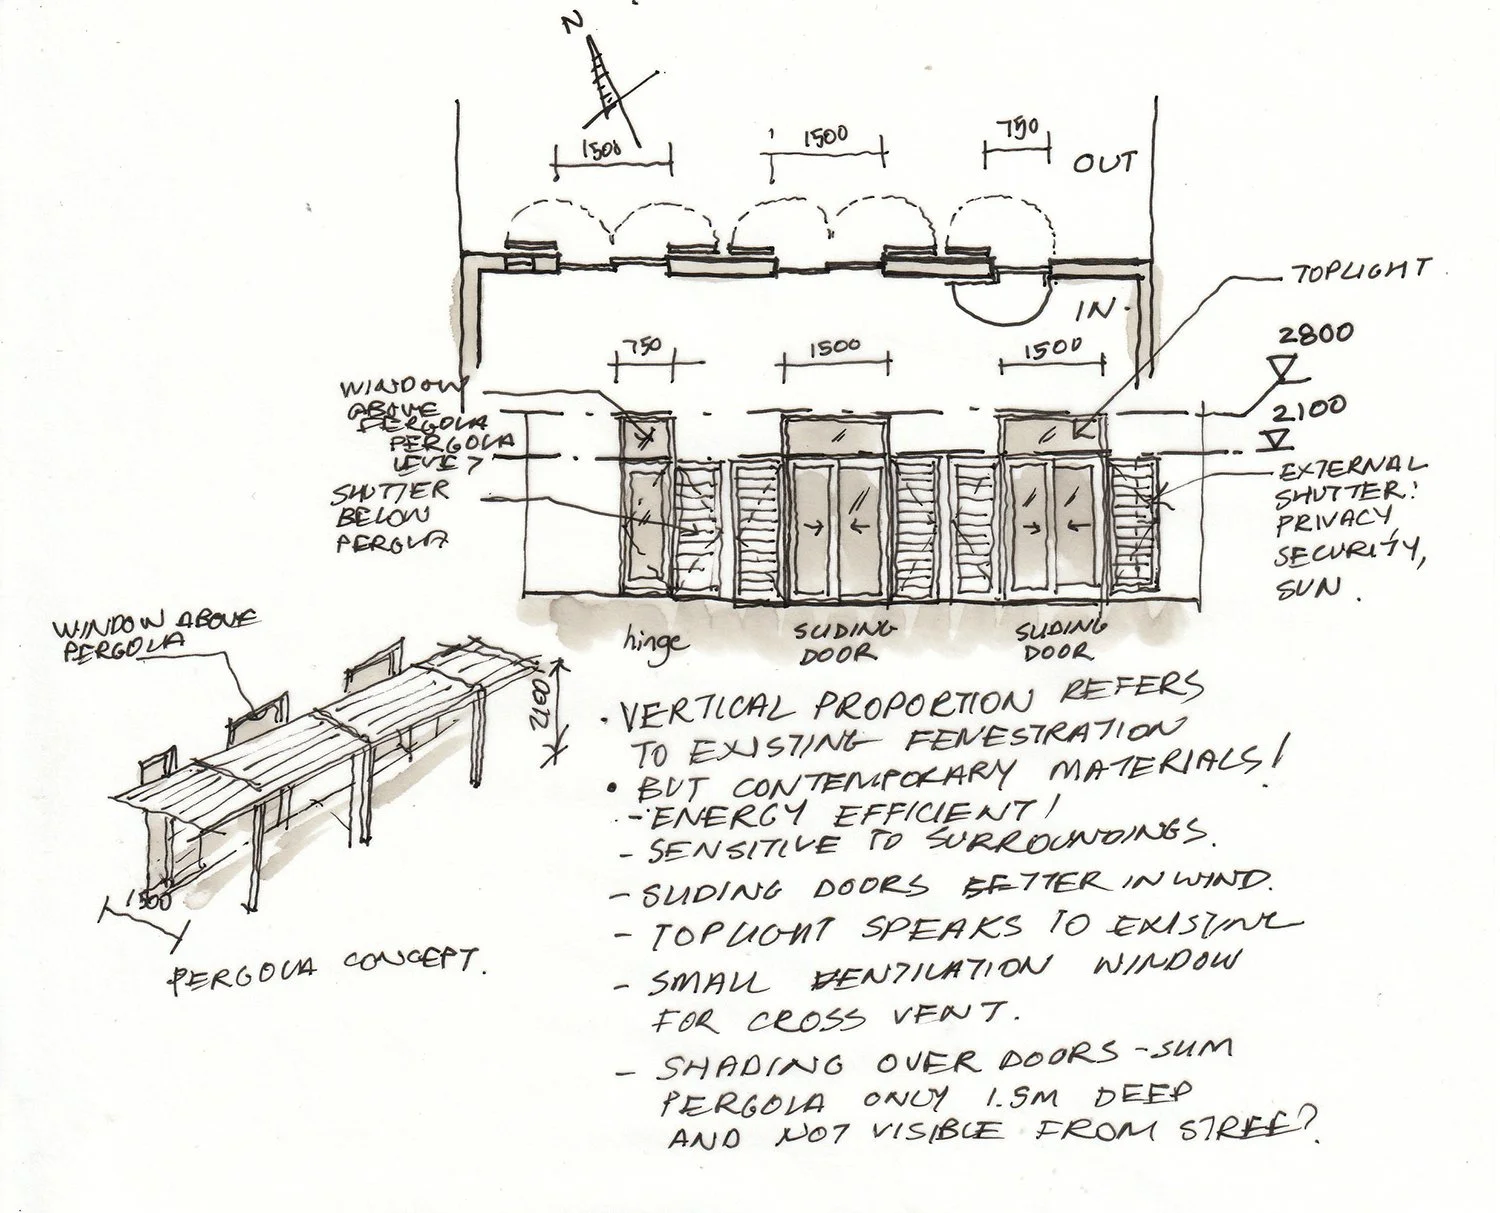 N
1500
1500
750
OUT
IN.
TOPLIGHT
2800
2100
750
1500
1500
WINDOW
ABOVE
PERGOLA
PERGOLA
LEVEL
SHUTTER
BELOW
PERGOLA
EXTERNAL
SHUTTER:
PRIVACY,
SECURITY,
SUN.
hinge
SLIDING
DOOR
SLIDING
DOOR
WINDOW ABOVE
PERGOLA
2100
1500
PERGOLA CONCEPT.
• VERTICAL PROPORTION REFERS
TO EXISTING FENESTRATION
• BUT CONTEMPORARY MATERIALS!
- ENERGY EFFICIENT!
- SENSITIVE TO SURROUNDINGS.
- SLIDING DOORS BETTER IN WIND.
- TOPLIGHT SPEAKS TO EXISTING
- SMALL VENTILATION WINDOW
FOR CROSS VENT.
- SHADING OVER DOORS - SLIM
PERGOLA ONLY 1.5M DEEP
AND NOT VISIBLE FROM STREET.